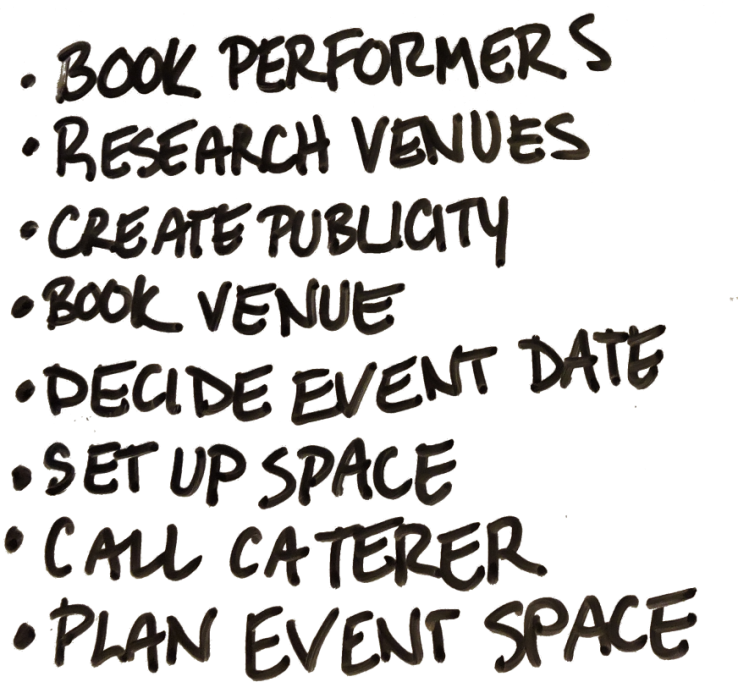 • BOOK PERFORMERS
• RESEARCH VENUES
• CREATE PUBLICITY
• BOOK VENUE
• DECIDE EVENT DATE
• SET UP SPACE
• CALL CATERER
• PLAN EVENT SPACE